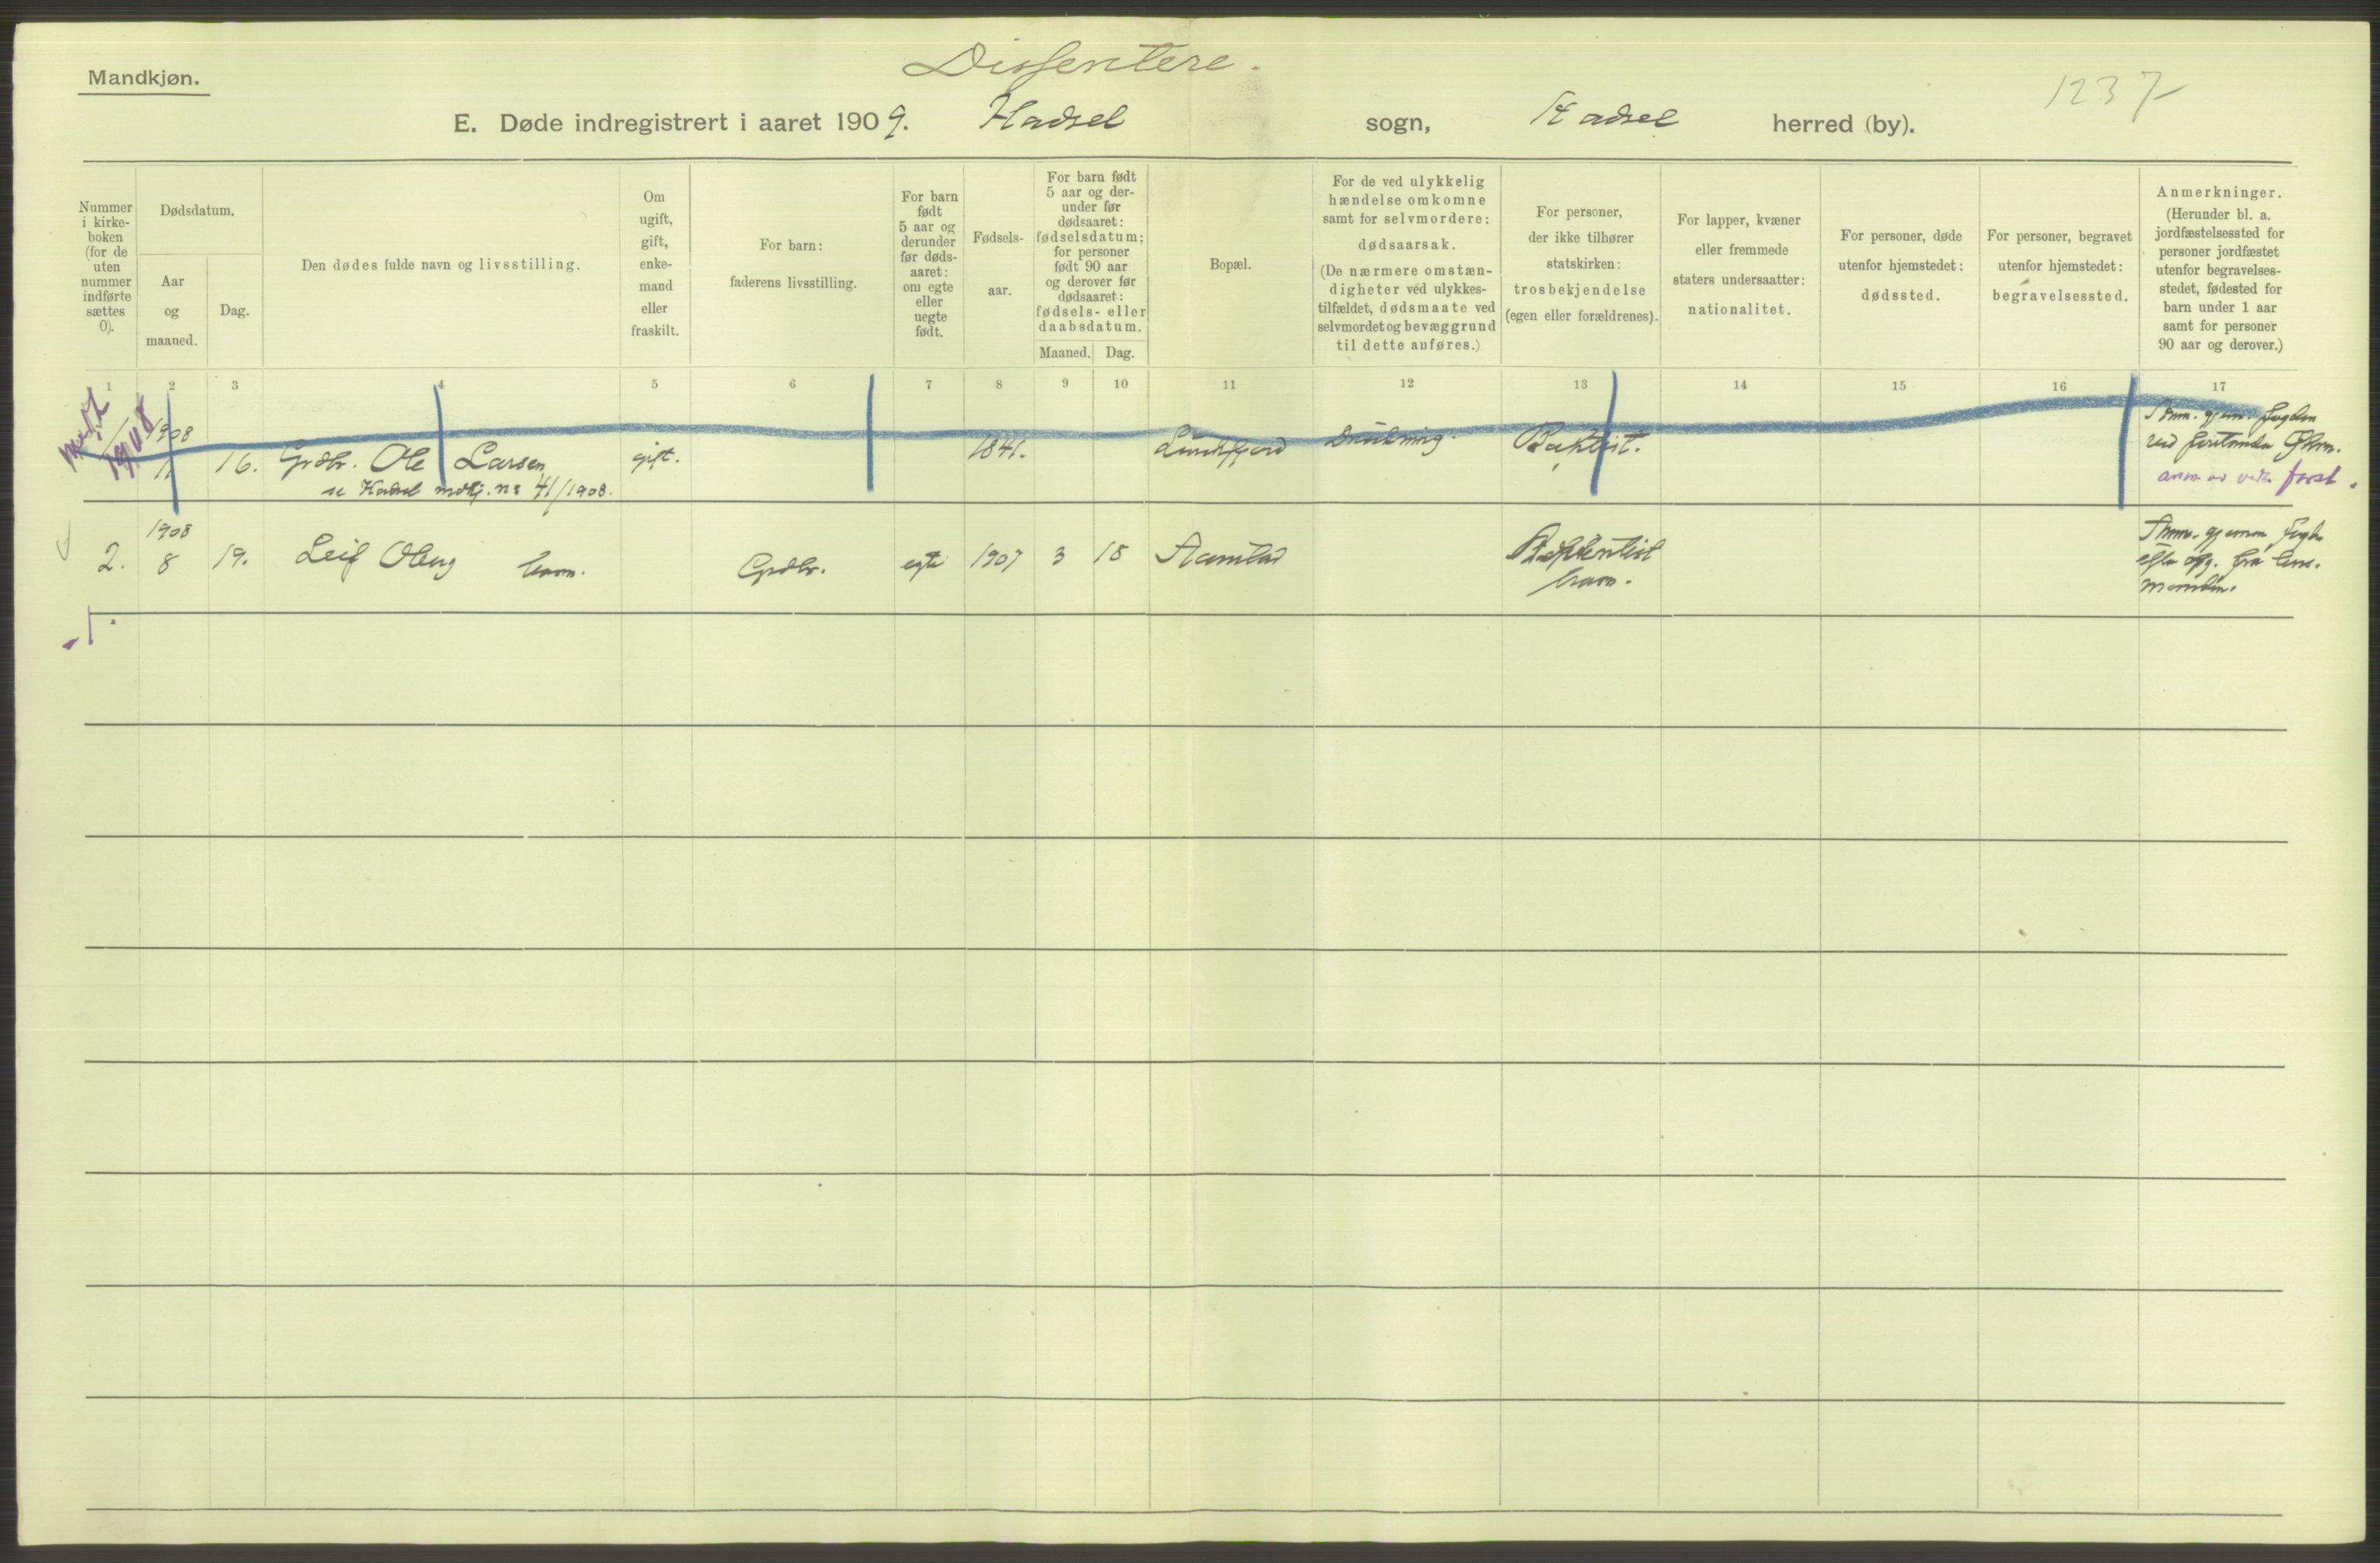 Dissentere.
Mandkjøn.
1237
E. Døde indregistrert i aaret 1909. Hadsel sogn, Hadsel herred (by).
Nummer
i kirke-
boken
(for de
uten
nummer
indførte
sættes
0).
Dødsdatum.
Aar
og
maaned.
Dag.
Den dødes fulde navn og livsstilling.
Om
ugift,
gift,
enke-
mand
eller
fraskilt.
For barn:
faderens livsstilling.
For barn
født
5 aar og
derunder
før døds-
aaret:
om egte
eller
uegte
født.
Fødsels-
aar.
For barn født
5 aar og der-
under før
dødsaaret:
fødselsdatum;
for personer
født 90 aar
og derover før
dødsaaret:
fødsels- eller
daabsdatum.
Maaned. Dag.
Bopæl.
For de ved ulykkelig
hændelse omkomne
samt for selvmordere:
dødsaarsak.
(De nærmere omstæn-
digheter ved ulykkes-
tilfældet, dødsmaate ved
selvmordet og bevæggrund
til dette anføres.)
For personer,
der ikke tilhører
statskirken:
trosbekjendelse
(egen eller forældrenes).
For lapper, kvæner
eller fremmede
staters undersaatter:
nationalitet.
For personer, døde
utenfor hjemstedet:
dødssted.
For personer, begravet
utenfor hjemstedet:
begravelsessted.
Anmerkninger.
(Herunder bl. a.
jordfæstelsessted for
personer jordfæstet
utenfor begravelses-
stedet, fødested for
barn under 1 aar
samt for personer
90 aar og derover.)
1 2 3 4 5 6 7 8 9 10 11 12 13 14 15 16 17
1908
1908
11 16. Grdbr. Ole Larsen gift. 1841. Drukning. Baptist.
se Hadsel mdkj. no 41/1908.
Anm. gjem. fogden
1908
2. 8 19. Leif Oberg barn. Grdbr. egte 1907 3 18
barn.
Anm. gjennem fogd
efter opg. fra lens-
manden.